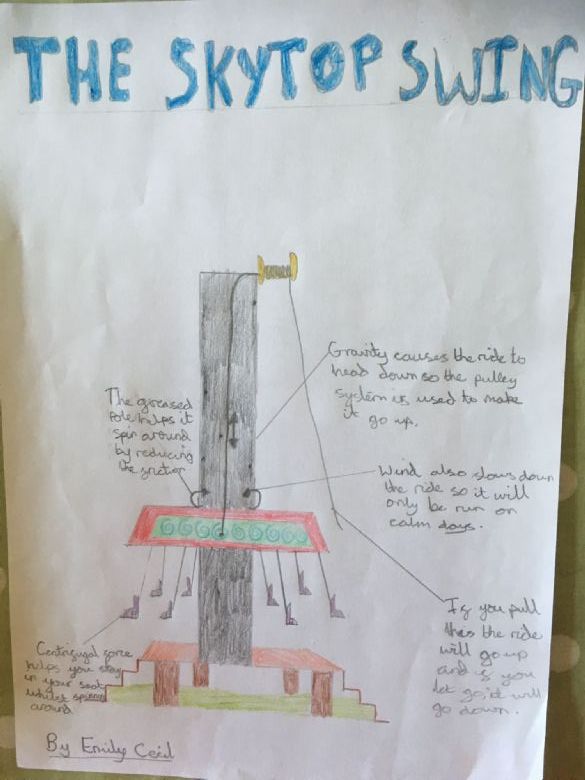 THE SKYTOP SWING
Gravity causes the ride to
head down so the pulley
system is used to make
it go up.
The greased
Pole helps it
spin around
by reducing
the friction
Wind also slows down
the ride so it will
only be run on
calm days.
If you pull
this the ride
will go up
and if you
let go it will
go down.
Centrifugal force
helps you stay
in your seat
whilst spinning
around
By Emily Cecil